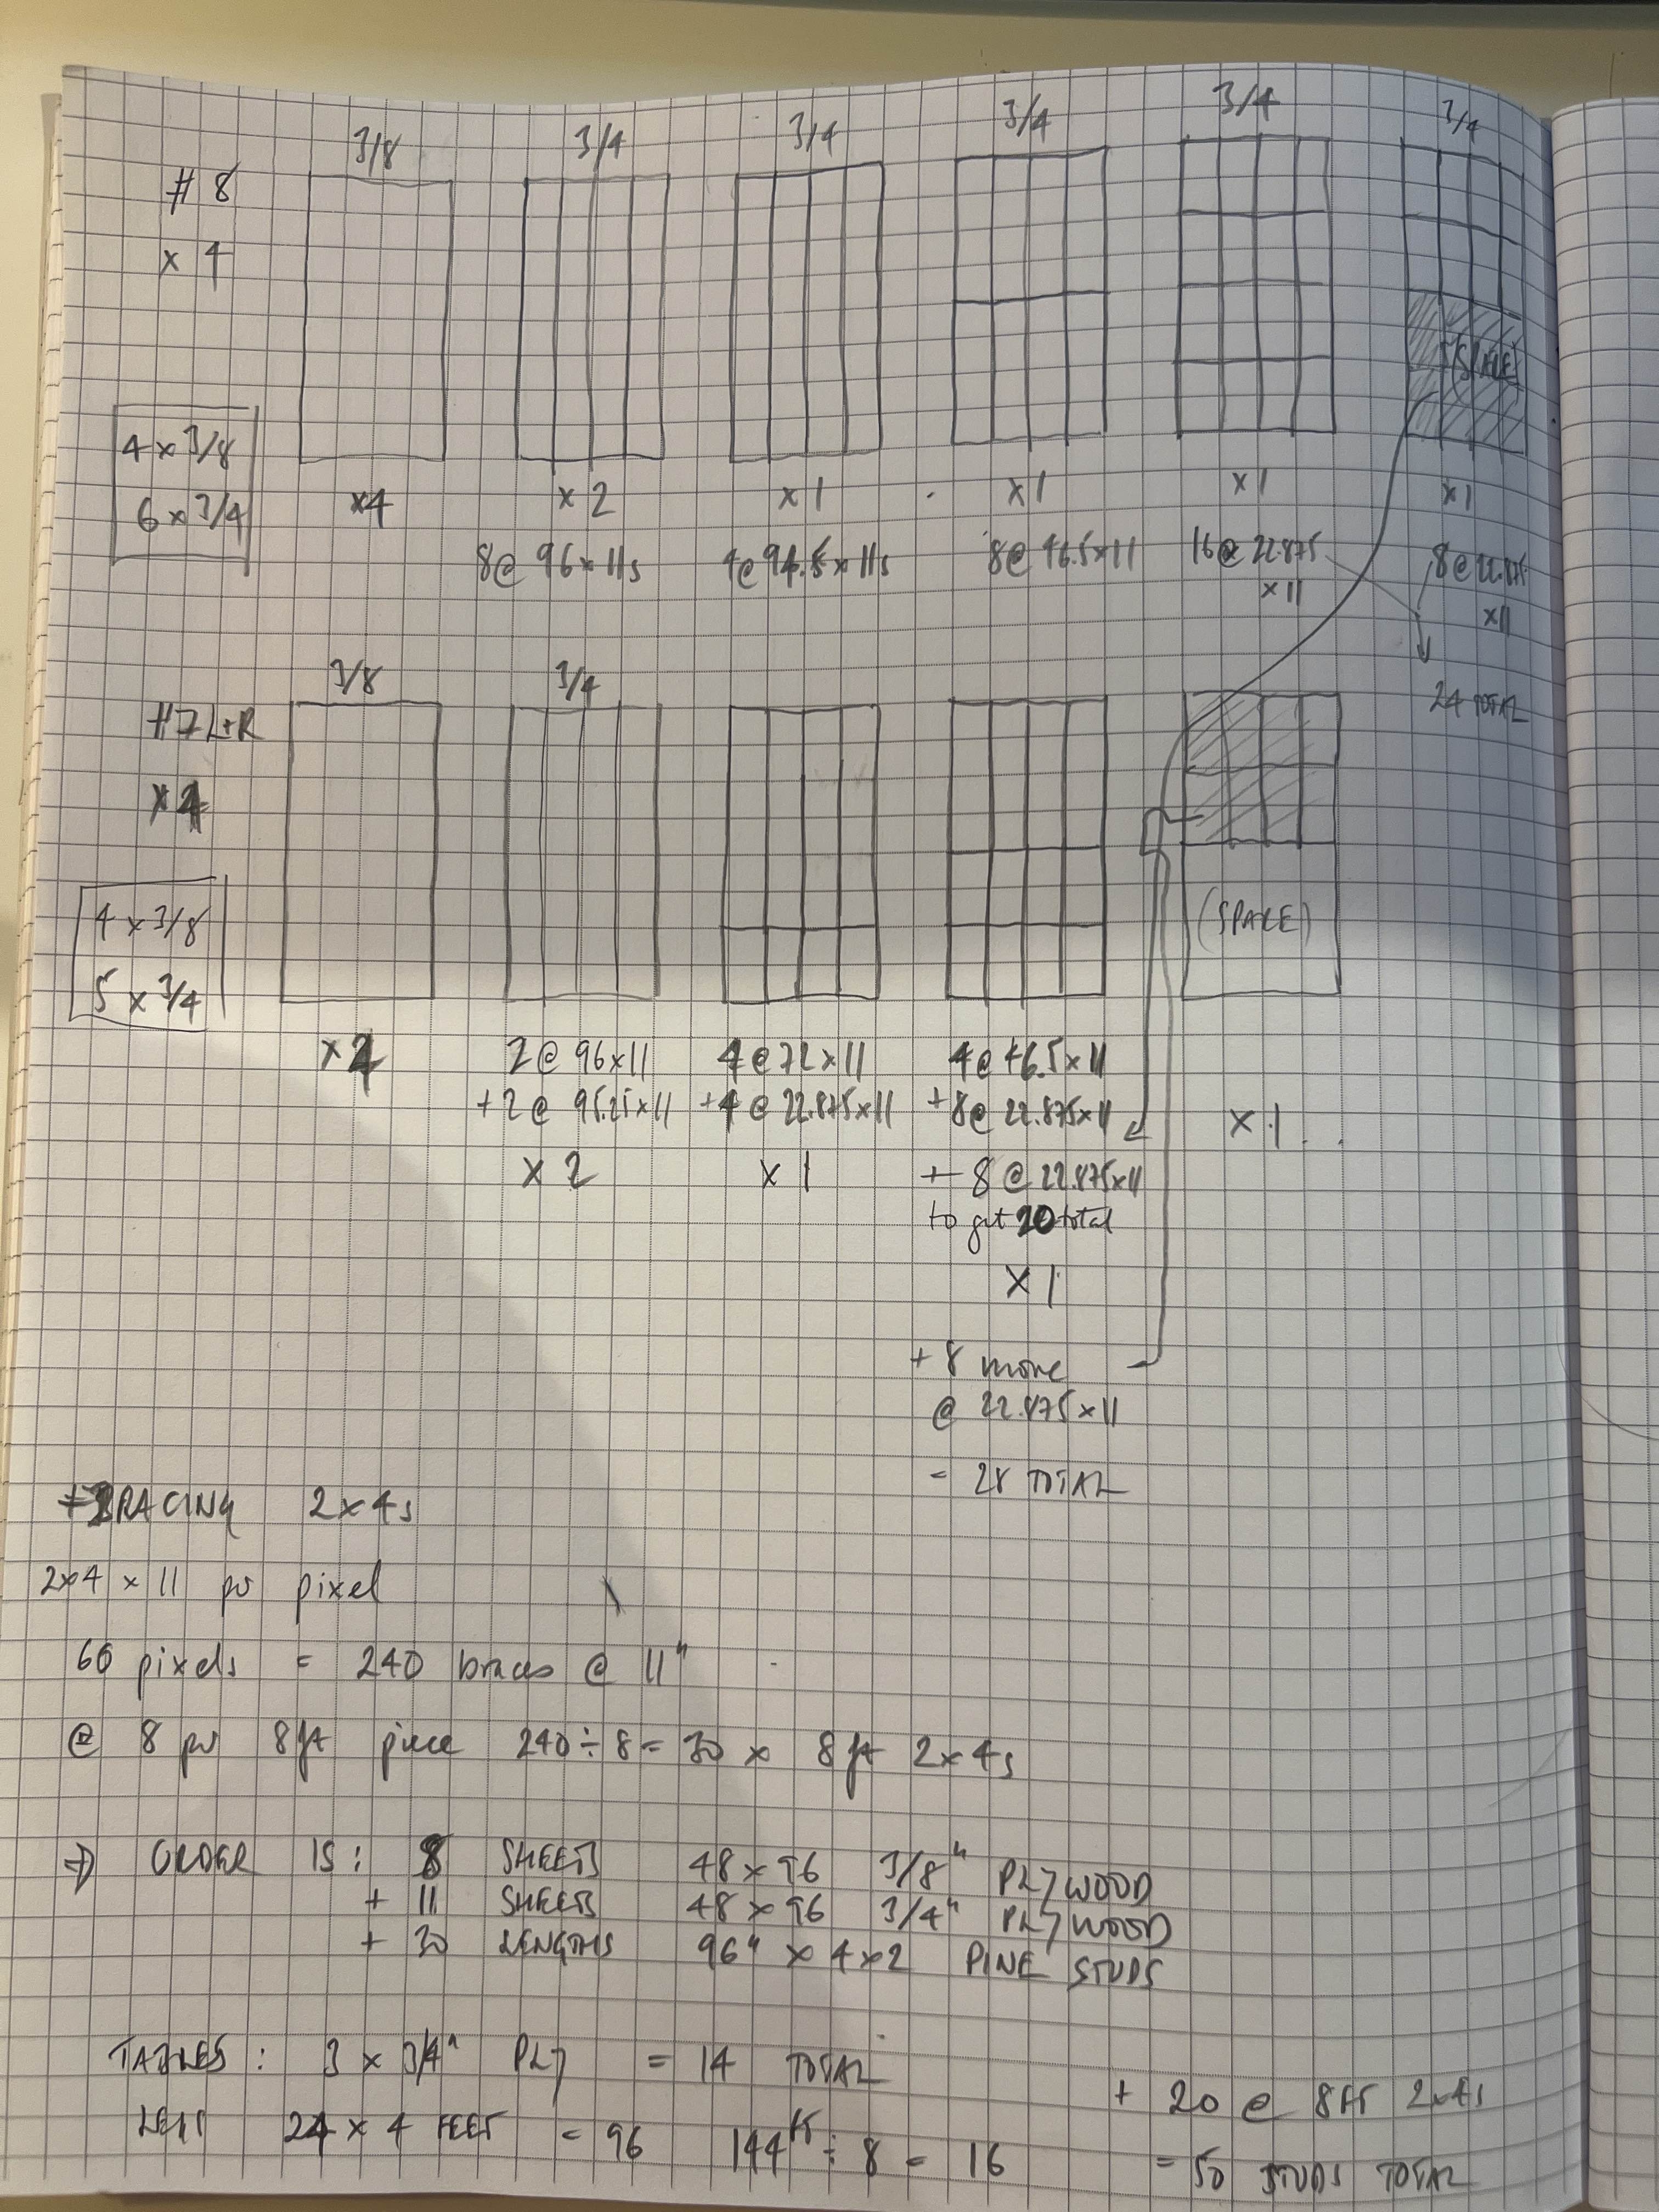 3/8 3/4 3/4 3/4 3/4 3/4
# 8
x 4
(SPARE)
4 x 3/8
6 x 3/4
x4 x 2 x 1 x 1 x 1 x 1
8@ 96 x 11s 4@ 94.5 x 11s 8@ 46.5x11 16@ 22.875 x 11 8@ 22.875 x 11
24 TOTAL
3/8 3/4
#7 L+R
x 4
(SPARE)
4 x 3/8
5 x 3/4
2@ 96x11 4@72x11 4@ 46.5x11
+2@ 95.25x11 +4@ 22.875x11 +8@ 22.875x11
x 1
x 2 x 1 + 8@ 22.875x11
to get 20 total
x 1
+ 8 more
@ 22.875x11
= 28 TOTAL
+BRACING 2x4s
2x4 x 11 per pixel
60 pixels = 240 braces @ 11"
@ 8 per 8ft piece 240÷8= 30 x 8ft 2x4s
⇒ ORDER IS: 8 SHEETS 48 x 96 3/8" PLYWOOD
+ 11 SHEETS 48 x 96 3/4" PLYWOOD
+ 30 LENGTHS 96" x 4x2 PINE STUDS
TABLES: 3 x 3/4" PLY = 14 TOTAL
+ 20 @ 8FT 2x4s
LEGS 24 x 4 FEET = 96 144ft ÷ 8 = 16
= 50 STUDS TOTAL